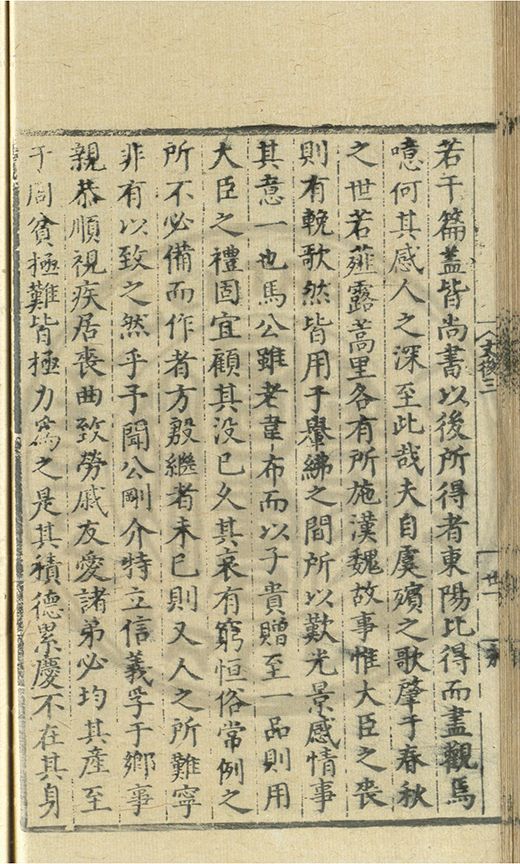 若干篇盖皆尚書以後所得者東陽比得而盡觀焉
噫何其感人之深至此哉夫自虞殯之歌肇于春秋
之世若薤露蒿里各有所施漢魏故事惟大臣之喪
則有輓歌然皆用于轝紼之間所以歎光景感情事
其意一也馬公雖老韋布而以子貴贈至一品則用
大臣之禮固宜顧其没已久其哀有窮恒俗常例之
所不必備而作者方殷繼者未已則又人之所難寧
非有以致之然乎予聞公剛介特立信義孚于鄉事
親恭順視疾居喪曲致勞戚友愛諸弟必均其產至
于周貧極難皆極力為之是其積德累慶不在其身